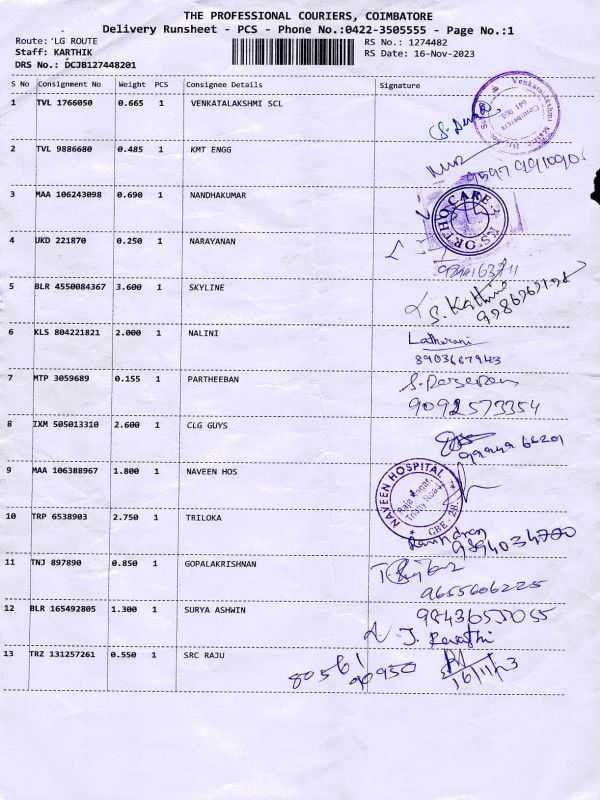 THE PROFESSIONAL COURIERS, COIMBATORE
Delivery Runsheet - PCS - Phone No.:0422-3505555 - Page No.:1
Route: LG ROUTE
RS No.: 1274482
Staff: KARTHIK
RS Date: 16-Nov-2023
DRS No.: DCJB127448201
S No Consignment No Weight PCS Consignee Details Signature
1 TVL 1766050 0.665 1 VENKATALAKSHMI SCL
2 TVL 9886680 0.485 1 KMT ENGG
3 MAA 106243098 0.690 1 NANDHAKUMAR
K.S. ORTHO CARE
4 UKD 221870 0.250 1 NARAYANAN
5 BLR 4550084367 3.600 1 SKYLINE
S. Kathir
6 KLS 804221821 2.000 1 NALINI
8903667943
7 MTP 3059689 0.155 1 PARTHEEBAN
9092573354
8 IXM 505013310 2.600 1 CLG GUYS
9 MAA 106388967 1.800 1 NAVEEN HOS
NAVEEN HOSPITAL
Raja Nagar,
Trichy Road,
CBE - 28
10 TRP 6538903 2.750 1 TRILOKA
9894034700
11 TNJ 897890 0.850 1 GOPALAKRISHNAN
9655606225
12 BLR 165492805 1.300 1 SURYA ASHWIN
J. Revathi
13 TRZ 131257261 0.550 1 SRC RAJU
80561
90950
16/11/23